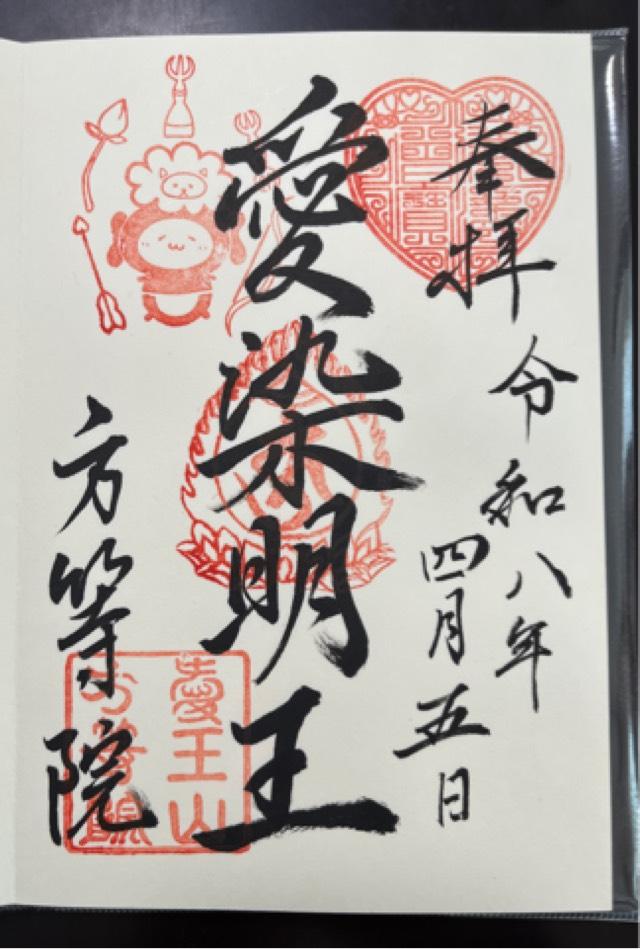 奉拝
令和八年
四月五日
愛染明王
方等院
愛王山
方等院